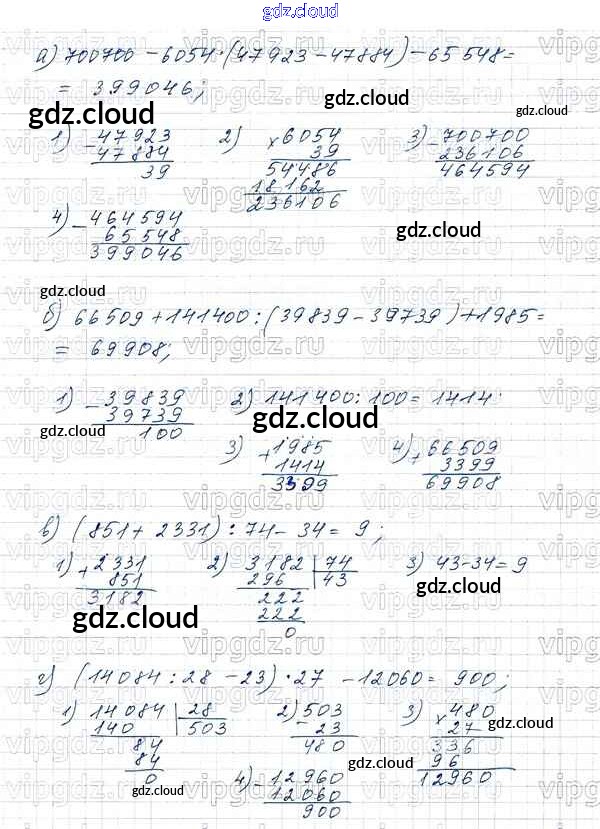 gdz.cloud
а) 700700 - 6054·(47923 - 47884) - 65548 =
= 399046;
gdz.cloud
1) - 47923   2) × 6054   3) - 700700
47884   39   236106
39   54486   464594
18162
236106
4) - 464594
65548
399046
gdz.cloud
gdz.cloud
б) 66509 + 141400 : (39839 - 39739) + 1985 =
= 69908;
1) - 39839   2) 141400 : 100 = 1414
39739
100
gdz.cloud
gdz.cloud
3) + 1985   4) + 66509
1414   3399
3399   69908
в) (851 + 2331) : 74 - 34 = 9;
1) + 2331   2) 3182 | 74   3) 43 - 34 = 9
851   296   43
3182   222
222
0
gdz.cloud
gdz.cloud
г) (14084 : 28 - 23) · 27 - 12060 = 900;
1) 14084 | 28   2) - 503   3) × 480
140   503   23   27
84   480   336
84   96
0   12960
4) - 12960
12060
900
gdz.cloud
gdz.cloud
gdz.cloud
vipgdz.ru